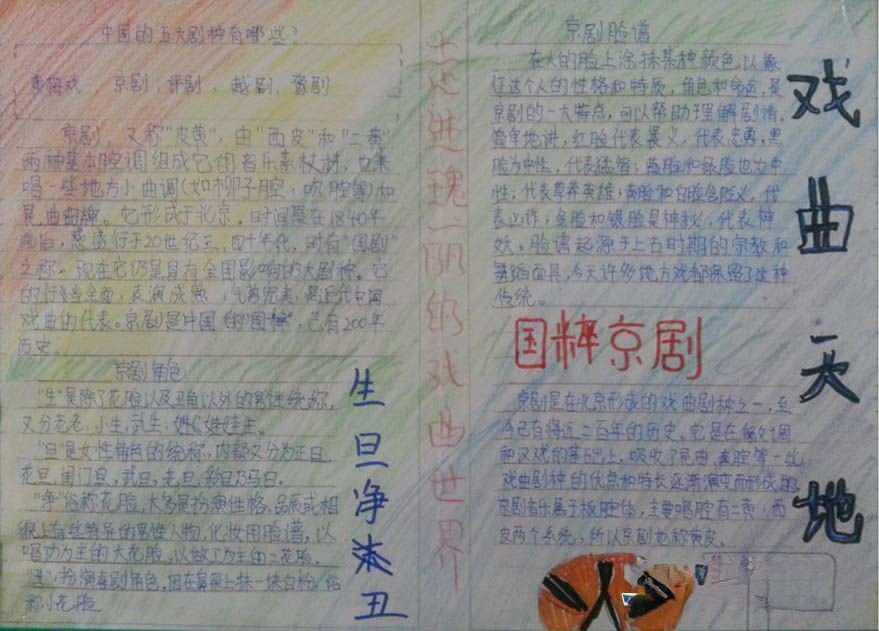 中国的五大剧种有哪些?
黄梅戏、京剧、评剧、越剧、豫剧
京剧,又称"皮黄",由"西皮"和"二黄"
两种基本腔调组成它的音乐素材,也兼
唱一些地方小曲调(如柳子腔,吹腔等)和
昆曲曲牌。它形成于北京,时间是在1840年
前后,盛行于20世纪三、四十年代,时有"国剧"
之称。现在它仍是具有全国影响的大剧种。它
的行当全面,表演成熟,气势完美,是近代中国
戏曲的代表。京剧是中国的"国粹",已有200年
历史。
京剧角色
"生"是除了花脸以及丑角以外的男性统称,
又分老老、小生,武生,娃娃生。
"旦"是女性角色的统称,内部又分为正旦、
花旦,闺门旦,武旦,老旦,
"净"俗称花脸,大多是扮演性格,品质或相
貌上有些特异的男性人物,化妆用脸谱,以
唱功为主的大花脸,以做工为主的二花脸。
"丑",扮演喜剧角色,因在鼻梁上抹一块白粉,俗
称小花脸
生旦净末丑
走进瑰丽的戏曲世界
京剧脸谱
在人的脸上涂抹某种颜色以象
征这个人的性格和特质,角色和命运,是
京剧的一大特点,可以帮助理解剧情。
简单地讲,红脸代表褒义,代表忠勇;黑
脸为中性,代表猛智;蓝脸和绿脸也为中
性,代表草莽英雄;黄脸和白脸含贬义,代
表凶诈;金脸和银脸是神秘,代表神
妖。脸谱起源于上古时期的宗教和
舞蹈面具,今天许多地方戏都保留了这种
传统。
国粹京剧
京剧是在北京形成的戏曲剧种之一,至
今已有将近二百年的历史。它是在徽调
和汉戏的基础上,吸收了昆曲、秦腔等一些
戏曲剧种的优点和特长逐渐演变而形成的。
京剧音乐属于板腔体,主要唱腔有二黄、西
皮两个系统,所以京剧也称黄皮。
戏曲天地